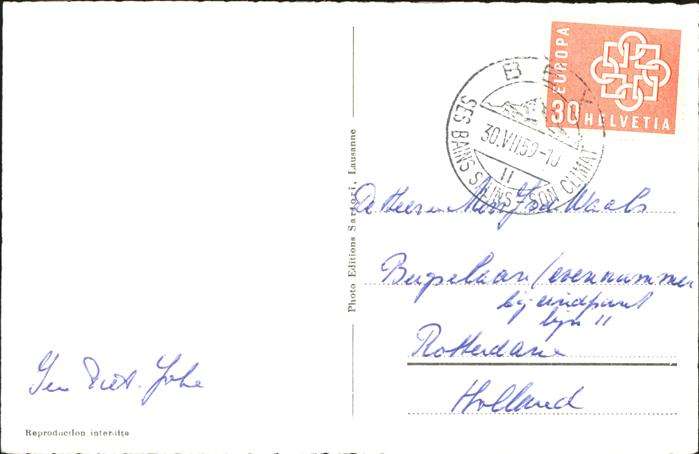 EUROPA
30 HELVETIA
BEX
30.VII.59-10
II
SES BAINS SALINS - SON CLIMAT
Photo Editions Sartori, Lausanne
De Heer en Mevr de Waals
Bergselaan / evennummer
bij eindpunt
lijn 11
Rotterdam
Holland
Reproduction interdite